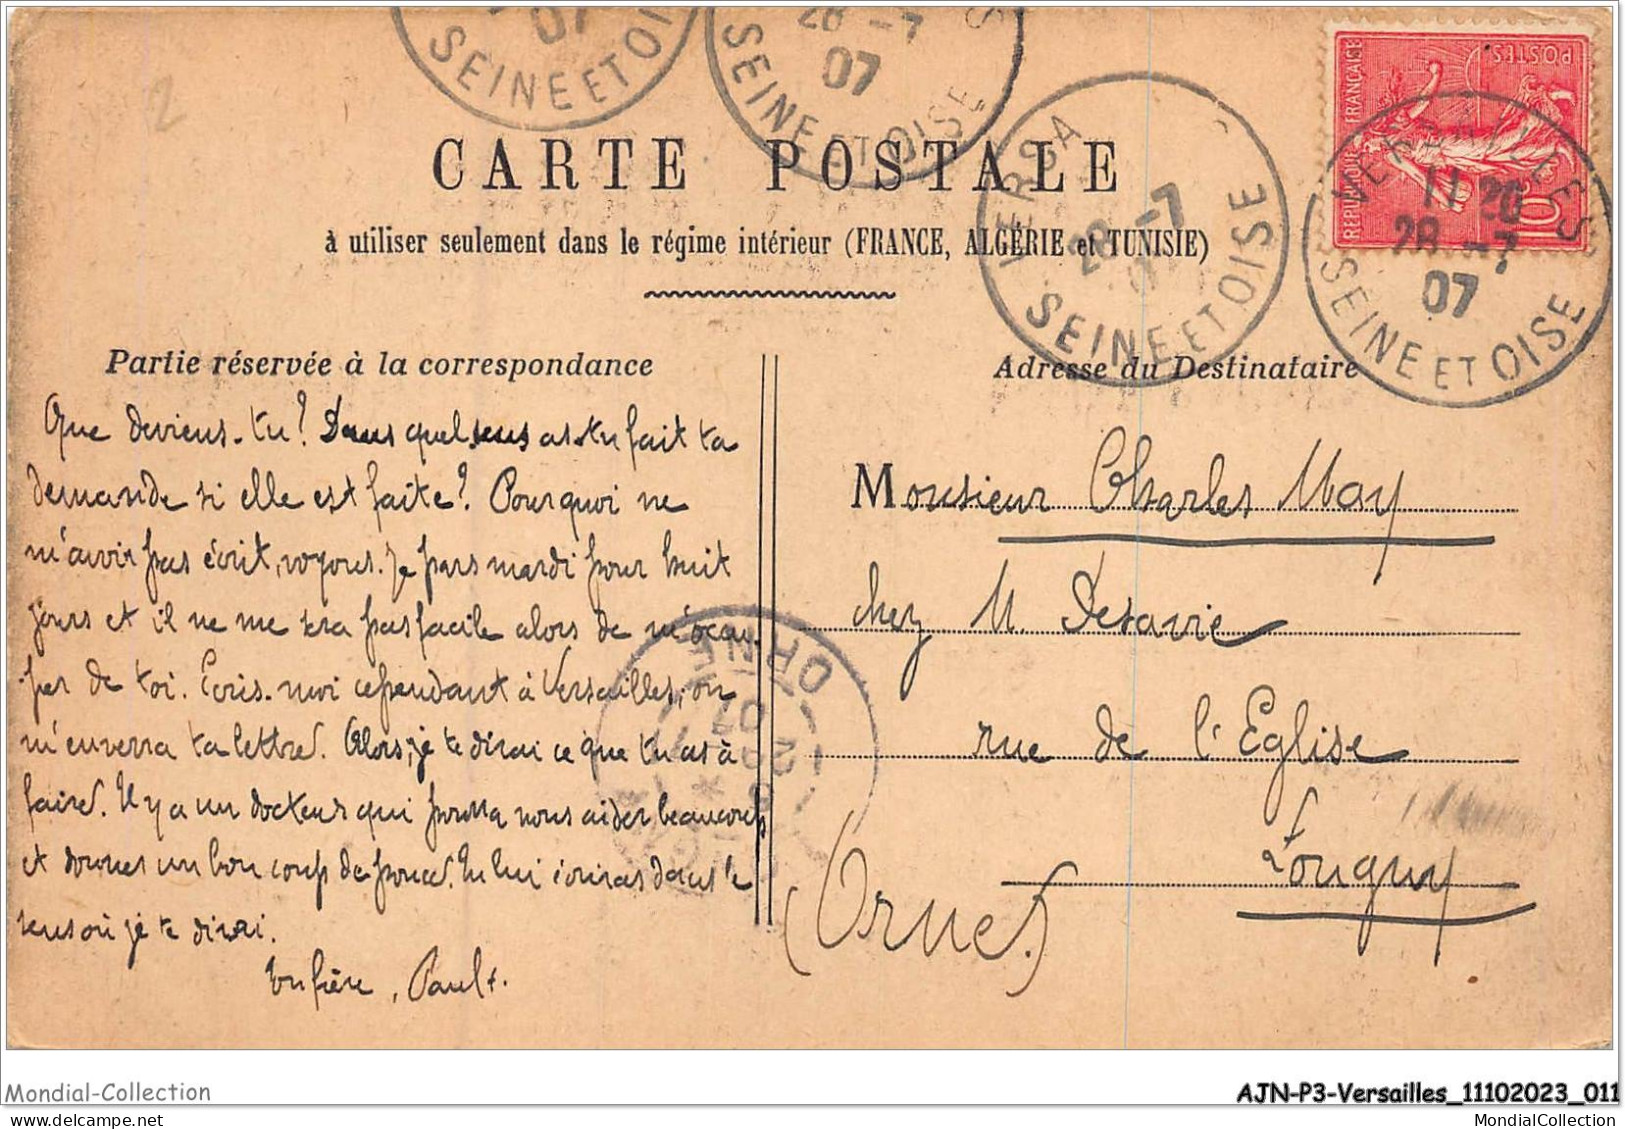 07
SEINE ET OI
28 -7
07
SEINE ET OISE
VERSA
28 -7
0
SEINE ET OISE
VERSAILLES
11 20
28 -7
07
SEINE ET OISE
POSTES
REPUBLIQUE FRANÇAISE
10
2
CARTE POSTALE
à utiliser seulement dans le régime intérieur (FRANCE, ALGÉRIE et TUNISIE)
Partie réservée à la correspondance
Que deviens-tu? Dans quel sens as-tu fait ta
demande si elle est faite? Pourquoi ne
m'avoir pas écrit, voyons. Je pars mardi pour huit
jours et il ne me sera pas facile alors de m'occu-
per de toi. Ecris-moi cependant à Versailles, on
m'enverra ta lettre. Alors, je te dirai ce que tu as à
faire. Il y a un docteur qui pourra nous aider beaucoup
et donner un bon coup de pouce. Tu lui écriras dans le
sens où je te dirai.
Ton frère, Paul.
Adresse du Destinataire
Monsieur Charles May
chez M. Desavie
rue de l'Eglise
Longny
(Orne)
ORNE
07
29
Mondial-Collection
AJN-P3-Versailles_11102023_011
MondialCollection